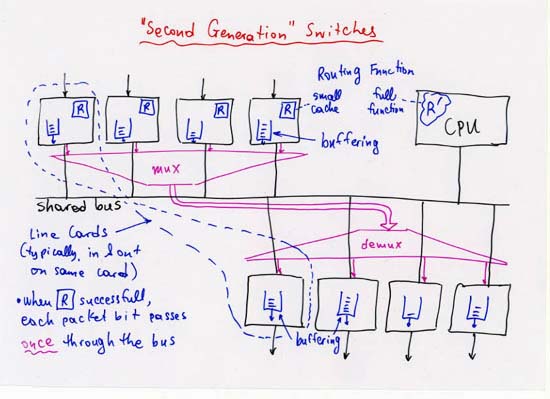 "Second Generation" Switches
Routing Function
small
cache
full
function
R
R
R
R
R'
CPU
buffering
mux
shared bus
Line Cards
(typically, in & out
on same card)
demux
• when R successfull,
each packet bit passes
once through the bus
buffering